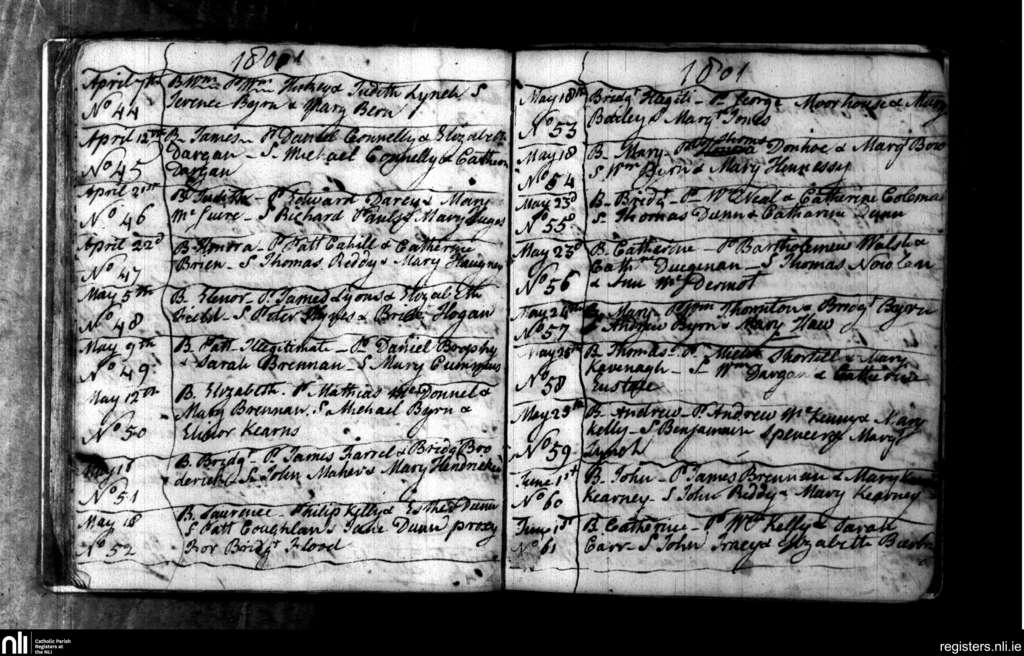 1801
April 7th B. Wm Pr Wm Hickey & Judith Lynch S
No 44 Terence Byrn & Mary Bern
April 12th B. James Pr Daniel Connelly & Elizabeth
No 45 Dargan S. Michael Connelly & Cathern
Dargan
April 21st B. Judith Pr Edward Darcy & Mary
No 46 McGuire S Richard & Mary
April 22d B. Pr Patt Cahill & Catherine
No 47 Brien S Thomas Reddy & Mary
May 5th B. Elenor Pr James Lyons & Elizabeth
No 48 S Peter & Bridt Hogan
May 9th B. Patt Illegitimate Pr Daniel Brophy
No 49 & Sarah Brennan S Mary Cummins
May 12th B. Elizabeth Pr Mathias McDonnel &
Mary Brennan S. Michael Byrn &
No 50 Elinor Kearns
B. Bridgt Pr James Farrel & Bridgt Bro
No 51 derick S. John Maher & Mary
May 18 B. Laurence Philip Kelly & Esther Dunn
No 52 S Patt Coughlan & Jane Dunn proxy
For Bridgt Flood
1801
May 18th Bridgt Illegiti Pr George Moorhouse & Mary
No 53 Bailey S Margt Jones
May 18 B. Mary Pr Thomas Donhoe & Margt Bow
No 54 S Wm Byrn & Mary Hennessy
May 23d B. Bridgt Pr Wm Neal & Catherine Coleman
No 55 S Thomas Dunn & Catharine Dunn
May 23d B. Catherine Pr Bartholemew Walsh &
Cathne Duegenan S Thomas Nowlan
No 56 & Ann McDermot
B. Mary Pr Wm Thornton & Bridgt Byrn
No 57 S Andrew Byrn & Mary
May B. Thomas Pr Shortell & Mary
No Kavenagh S Wm Dargan & Catherine
58 Eustace
May B. Andrew Pr Andrew McKenny & Mary
Kelly S Benjamin Spencer & Margt
No 59 Lynch
June 1st B. John Pr James Brennan & Mary
No 60 Kearney S John Reddy & Mary Kearney
June 1st B. Catherine Pr Wm Kelly & Sarah
No 61 Carr S John Tracy & Elizabeth
nli
Catholic Parish
Registers at
the NLI
registers.nli.ie